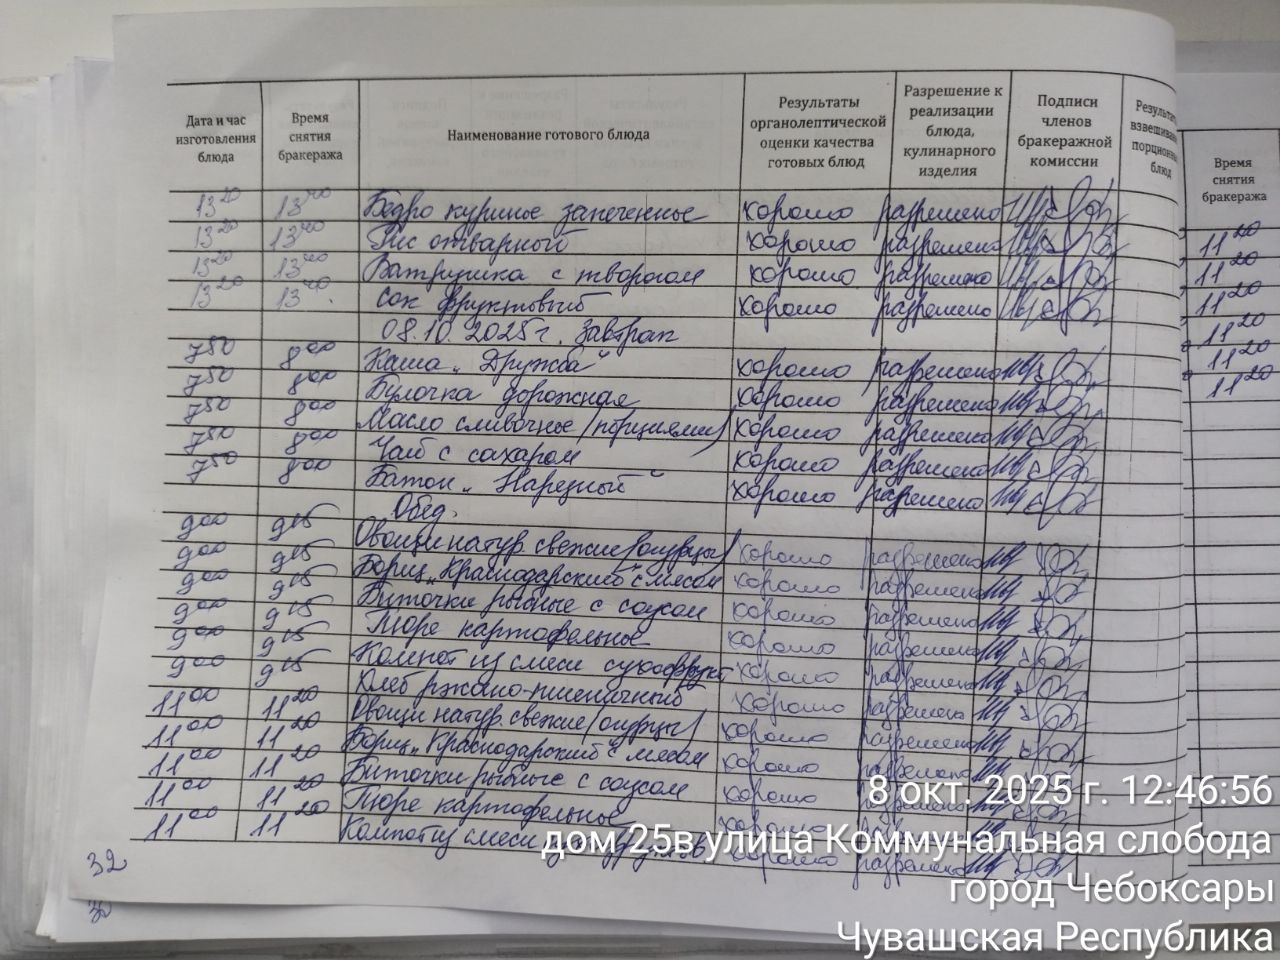 Дата и час изготовления блюда | Время снятия бракеража | Наименование готового блюда | Результаты органолептической оценки качества готовых блюд | Разрешение к реализации блюда, кулинарного изделия | Подписи членов бракеражной комиссии | Результаты взвешивания порционных блюд | Время снятия бракеража
13 20 13 40 Бедро куриное запеченное хорошо разрешено
13 20 13 40 Рис отварной хорошо разрешено 11 20
13 20 13 40 Ватрушка с творогом хорошо разрешено 11 20
13 20 13 40 Сок фруктовый хорошо разрешено 11 20
08.10.2025г. Завтрак 11 20
7 50 8 00 Каша „Дружба" хорошо разрешено 11 20
7 50 8 00 Булочка дорожная хорошо разрешено 11 20
7 50 8 00 Масло сливочное (порциями) хорошо разрешено
7 50 8 00 Чай с сахаром хорошо разрешено
7 50 8 00 Батон „Нарезный" хорошо разрешено
Обед.
9 00 9 15 Овощи натур. свежие (огурцы) хорошо разрешено
9 00 9 15 Борщ „Краснодарский" с мясом хорошо разрешено
9 00 9 15 Биточки рыбные с соусом хорошо разрешено
9 00 9 15 Пюре картофельное хорошо разрешено
9 00 9 15 Компот из смеси сухофрукт хорошо разрешено
9 00 9 15 Хлеб ржано-пшеничный хорошо разрешено
11 00 11 20 Овощи натур. свежие (огурцы) хорошо разрешено
11 00 11 20 Борщ „Краснодарский" с мясом хорошо разрешено
11 00 11 20 Биточки рыбные с соусом хорошо разрешено
11 00 11 20 Пюре картофельное хорошо разрешено
11 00 11 20 Компот из смеси хорошо разрешено
32
8 окт. 2025 г. 12:46:56
дом 25в улица Коммунальная слобода
город Чебоксары
Чувашская Республика